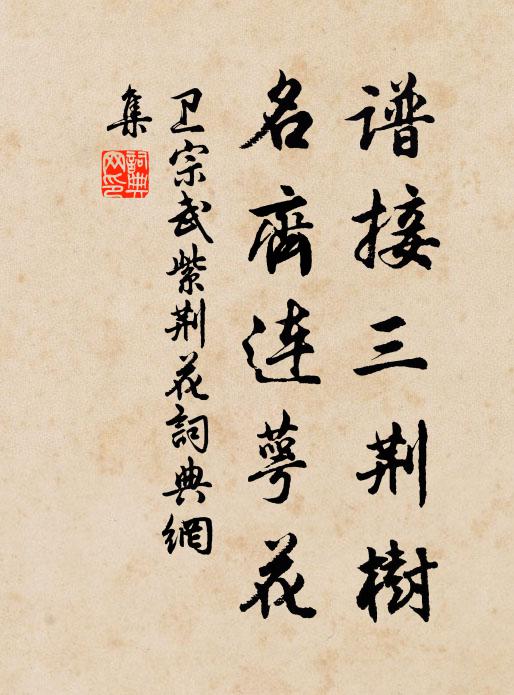 谱接三荆树
名齊连萼花
卫宗武紫荆花詞典網
集
詞典
网印